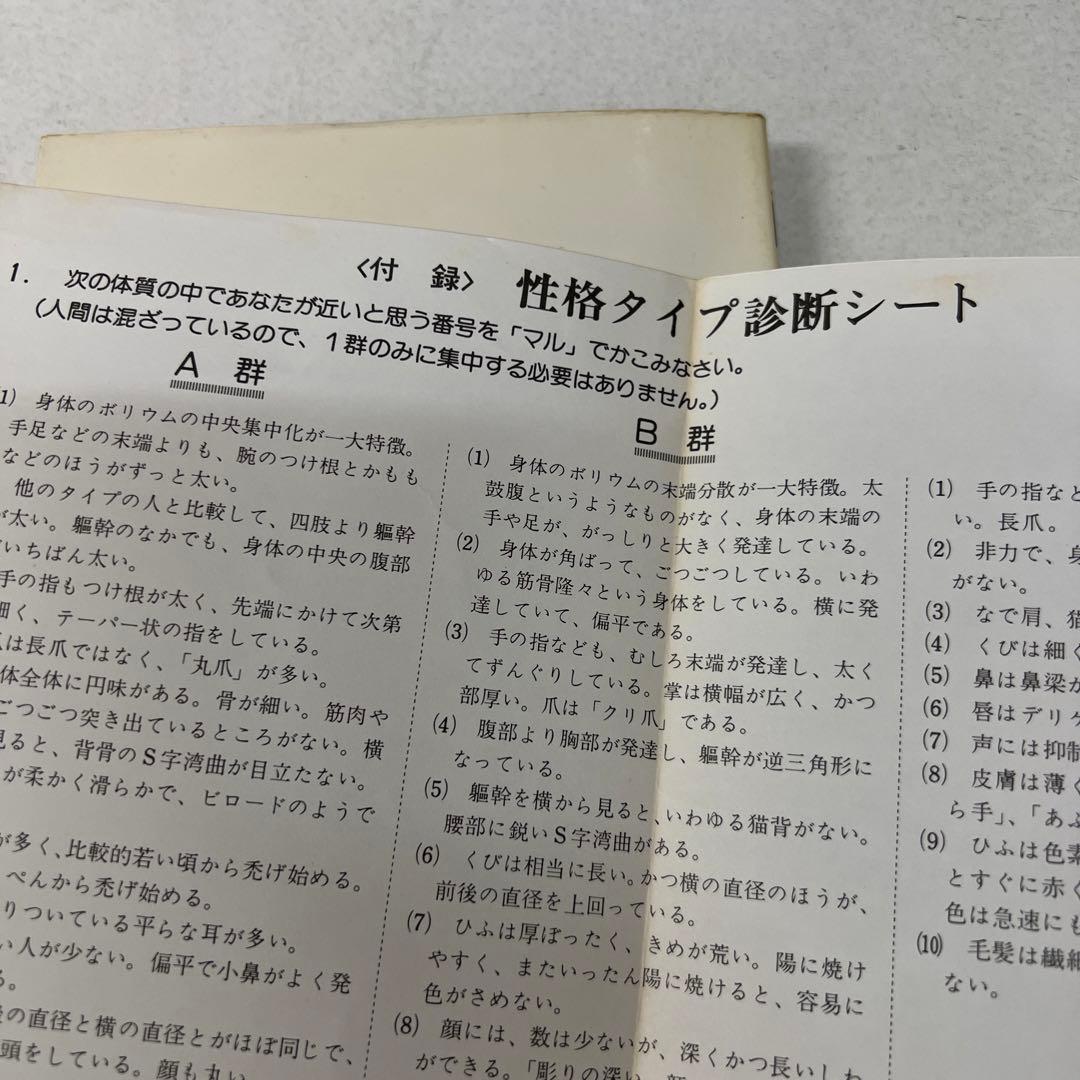 〈付 録〉 性格タイプ診断シート
1. 次の体質の中であなたが近いと思う番号を「マル」でかこみなさい。
(人間は混ざっているので、1群のみに集中する必要はありません。)
A 群
(1) 身体のボリウムの中央集中化が一大特徴。
手足などの末端よりも、腕のつけ根とかもも
などのほうがずっと太い。
他のタイプの人と比較して、四肢より軀幹
が太い。軀幹のなかでも、身体の中央の腹部
いちばん太い。
手の指もつけ根が太く、先端にかけて次第
細く、テーパー状の指をしている。
は長爪ではなく、「丸爪」が多い。
体全体に円味がある。骨が細い。筋肉や
ごつごつ突き出ているところがない。横
見ると、背骨のS字湾曲が目立たない。
が柔かく滑らかで、ビロードのようで
が多く、比較的若い頃から禿げ始める。
ぺんから禿げ始める。
りついている平らな耳が多い。
い人が少ない。偏平で小鼻がよく発
る。
の直径と横の直径とがほぼ同じで、
頭をしている。顔も丸い
B 群
(1) 身体のボリウムの末端分散が一大特徴。太
鼓腹というようなものがなく、身体の末端の
手や足が、がっしりと大きく発達している。
(2) 身体が角ばって、ごつごつしている。いわ
ゆる筋骨隆々という身体をしている。横に発
達していて、偏平である。
(3) 手の指なども、むしろ末端が発達し、太く
てずんぐりしている。掌は横幅が広く、かつ
部厚い。爪は「クリ爪」である。
(4) 腹部より胸部が発達し、軀幹が逆三角形に
なっている。
(5) 軀幹を横から見ると、いわゆる猫背がない。
腰部に鋭いS字湾曲がある。
(6) くびは相当に長い。かつ横の直径のほうが、
前後の直径を上回っている。
(7) ひふは厚ぼったく、きめが荒い。陽に焼け
やすく、またいったん陽に焼けると、容易に
色がさめない。
(8) 顔には、数は少ないが、深くかつ長いしわ
ができる。「彫りの深い
(1) 手の指など
い。長爪。
(2) 非力で、身
がない。
(3) なで肩、猫
(4) くびは細く
(5) 鼻は鼻梁が
(6) 唇はデリケ
(7) 声には抑制
(8) 皮膚は薄く
ら手」、「あぶ
(9) ひふは色素
とすぐに赤く
色は急速にも
(10) 毛髪は繊細
ない。